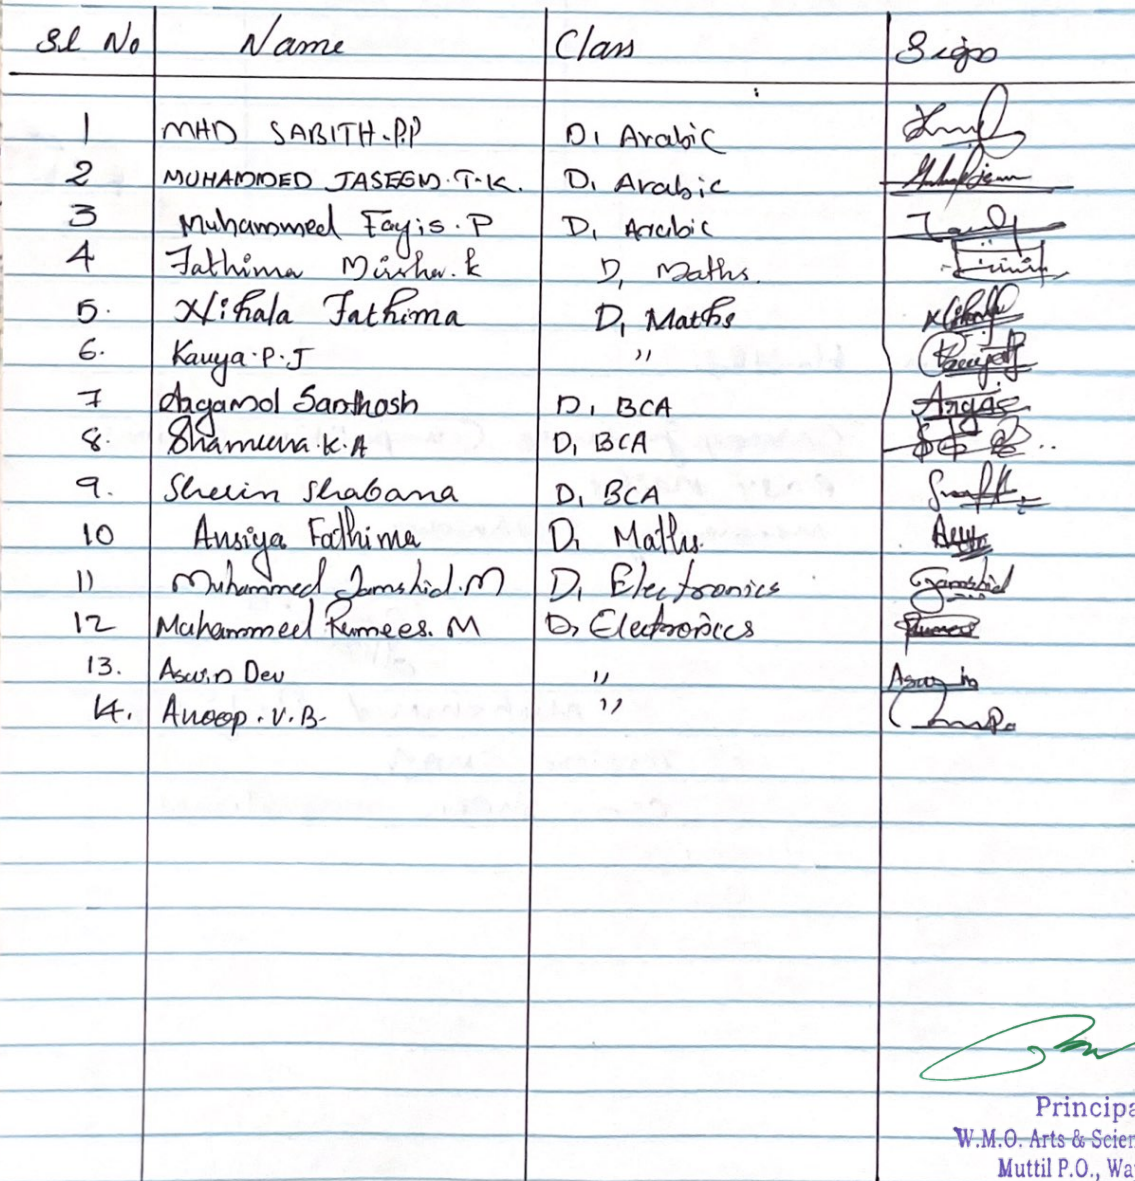 Sl No Name Class Sign
1 MHD SABITH.P.P D1 Arabic
2 MUHAMMED JASEEM.T.K. D1 Arabic
3 Muhammed Fayis.P D1 Arabic
4 Fathima k D1 Maths.
5. Nihala Fathima D1 Maths
6. Kavya.P.J "
7 Santhosh D1 BCA
8. K.A D1 BCA
9. Sherin Shabana D1 BCA
10 Ansiya Fathima D1 Maths.
11 Muhammed Jamshid.M D1 Electronics Jamshid
12 Muhammed Rumees.M D1 Electronics
13. Aswin Dev " Aswin
14. Anoop.V.B- "
Principa
W.M.O. Arts & Scien
Muttil P.O., Wa